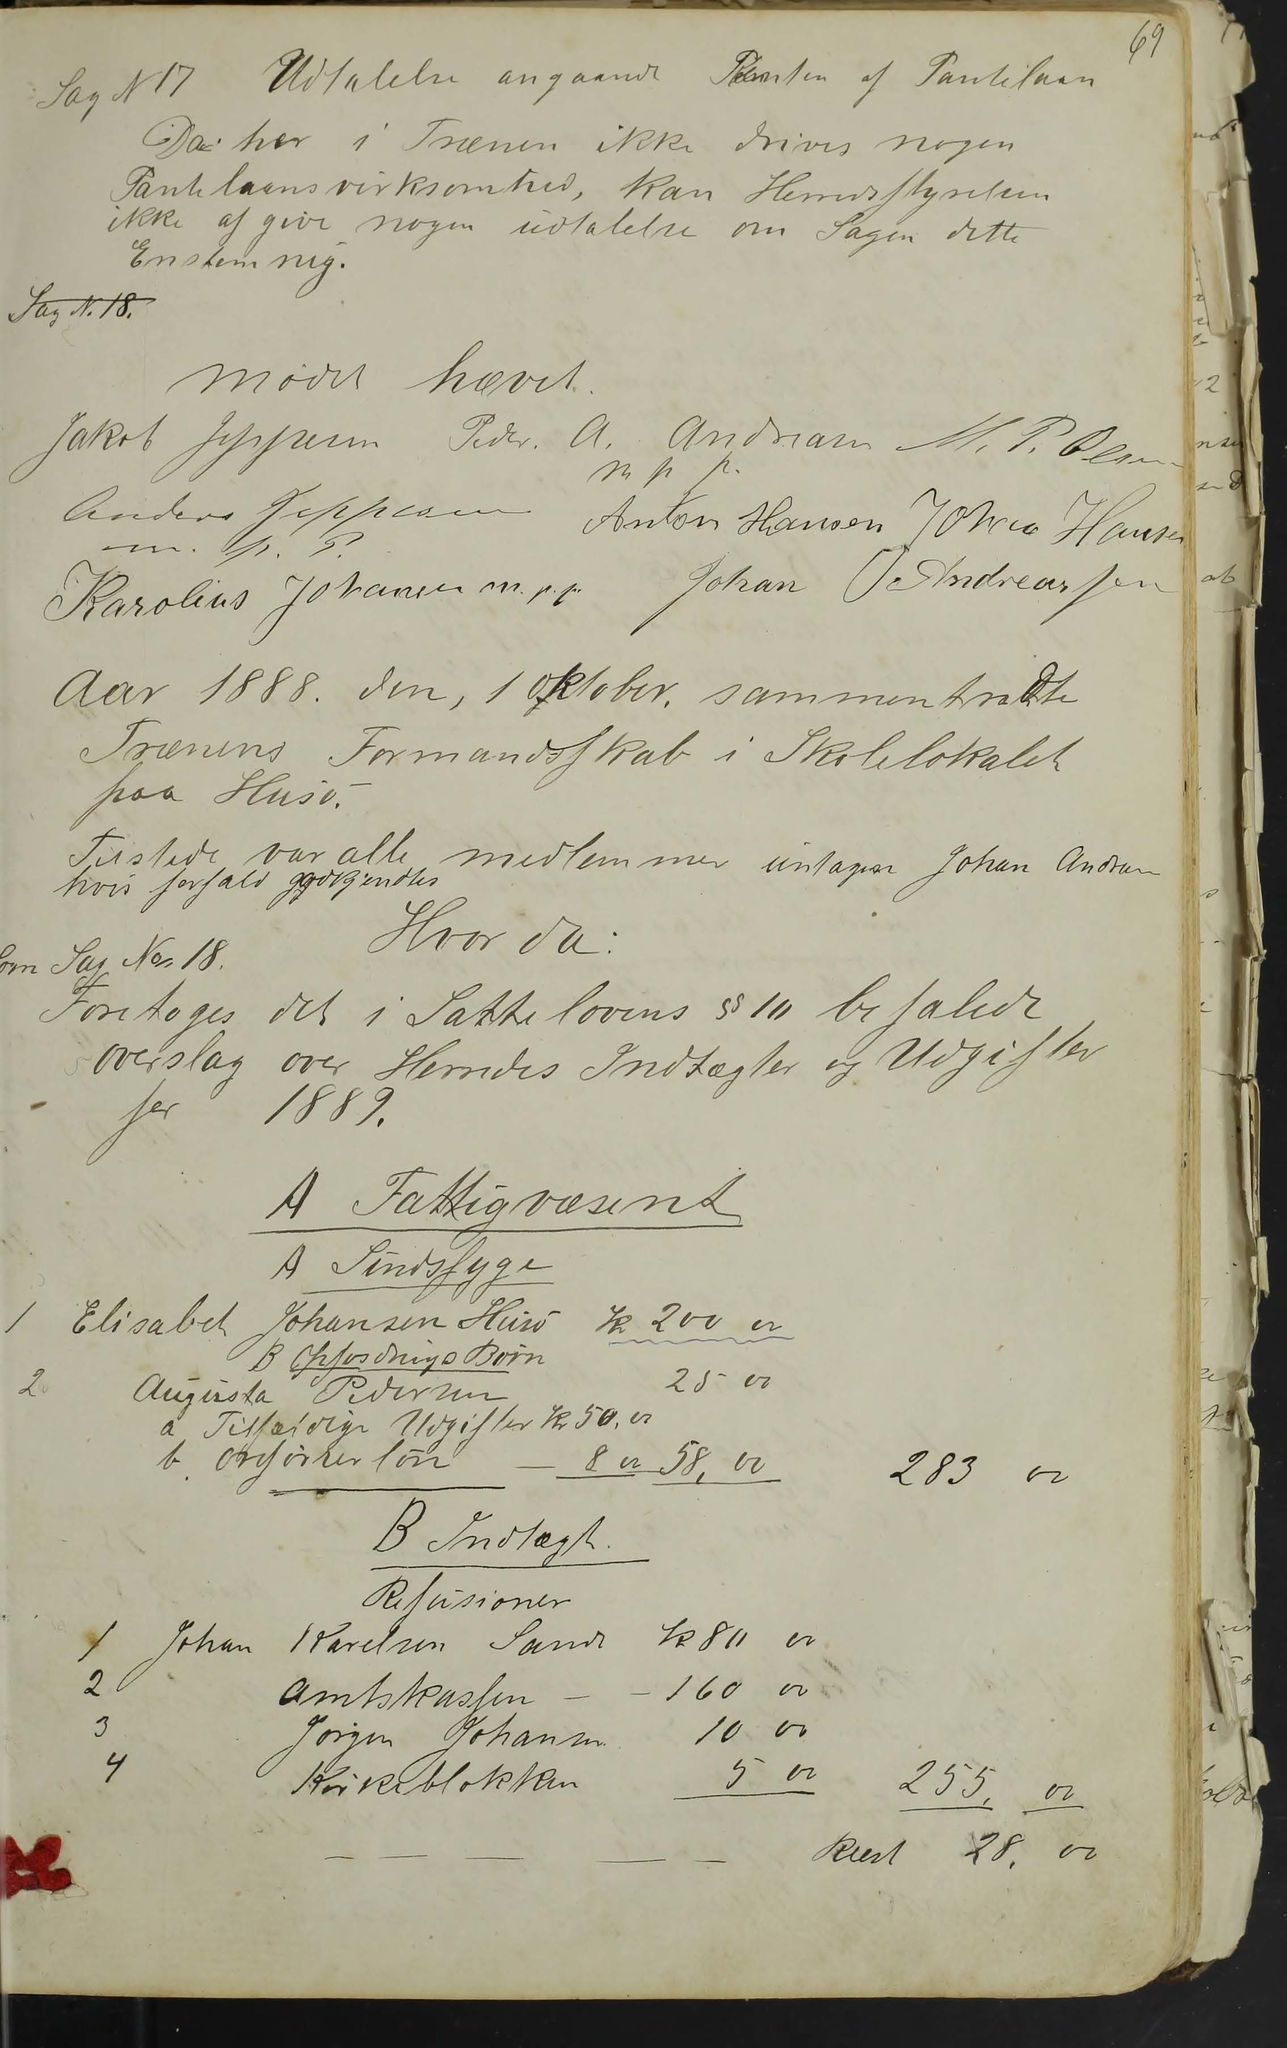 69
Sag N 17 Udtalelse angaande Renten af Pantelaan
Da her i Trænen ikke drives nogen
Pantelaansvirksomhed, kan Herredsstyrelsen
ikke af give nogen udtalelse om Sagen dette
Enstemmig.
Sag N. 18.
Mødet hævet.
Jakob Jeppesen Peder. A. Andreasen M. P. Olsen
m p p.
Anders Jeppesen Anton Hansen Johan Hansen
m. p. P.
Karolius Johansen m. p. p. Johan Andreassen
Aar 1888. den, 1 Oktober. sammentraadte
Trænens Formandsskab i Skolelokalet
paa Husø.
Tilstede var alle medlemmer untagen Johan Andreasen
hvis forfald godkjendtes
Hvor da:
Som Sag No 18.
Foretoges det i Skattelovens §§ 10 befalede
overslag over Herredes Indtægter og Udgifter
for 1889.
A Fattigvæsent
A Sindssyge
1 Elisabet Johansen Husø Kr 200 00
B Opfostrings Børn
2 Augusta Pedersen 25 00
a Tilfældige Udgifter Kr 50, 00
b. Ordførerløn — 8 00 58, 00 283 00
B Indtægt.
Refusioner
1 Johan Karelsen Sande Kr 80 00
2 Amtskassen — — 160 00
3 Jørgen Johansen 10 00
4 Kirkeblokken 5 00 255, 00
— — — — — Rest 28. 00